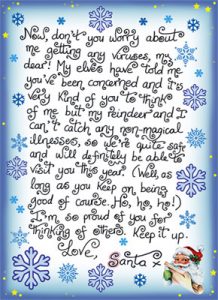 Now, don't you worry about
me getting any viruses, my
dear! My elves have told me
you've been concerned and it's
very kind of you to think
of me but my reindeer and I
can't catch any non-magical
illnesses, so we're quite safe
and will definitely be able to
visit you this year. (Well, as
long as you keep on being
good of course. Ho, ho, ho!)
I'm so proud of you for
thinking of others. Keep it up.
Love,
Santa